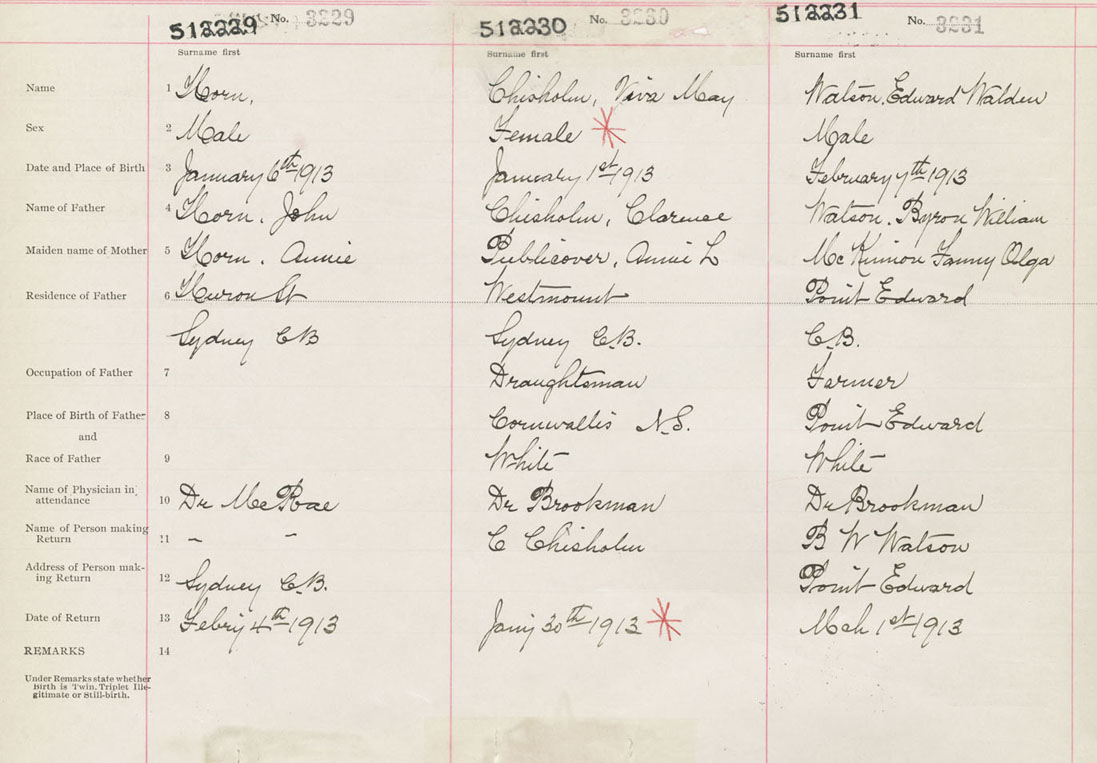 512229 No. 3229 512230 No. 3230 512231 No. 3231
Surname first Surname first Surname first
Name 1 Horn, Chisholm, Viva May Watson, Edward Walden
Sex 2 Male Female Male
Date and Place of Birth 3 January 6th 1913 January 1st 1913 February 7th 1913
Name of Father 4 Horn, John Chisholm, Clarence Watson, Byron William
Maiden name of Mother 5 Horn, Annie Publicover, Annie L McKinnon Fanny Olga
Residence of Father 6 Huron St Westmount Point Edward
Sydney CB Sydney C.B. C.B.
Occupation of Father 7 Draughtsman Farmer
Place of Birth of Father 8 Cornwallis N.S. Point Edward
and
Race of Father 9 White White
Name of Physician in attendance 10 Dr McRae Dr Brookman Dr Brookman
Name of Person making Return 11 – – C Chisholm B W Watson
Address of Person mak-ing Return 12 Sydney C.B. Point Edward
Date of Return 13 Febry 4th 1913 Jany 30th 1913 Mch 1st 1913
REMARKS 14
Under Remarks state whether
Birth is Twin, Triplet Ille-
gitimate or Still-birth.